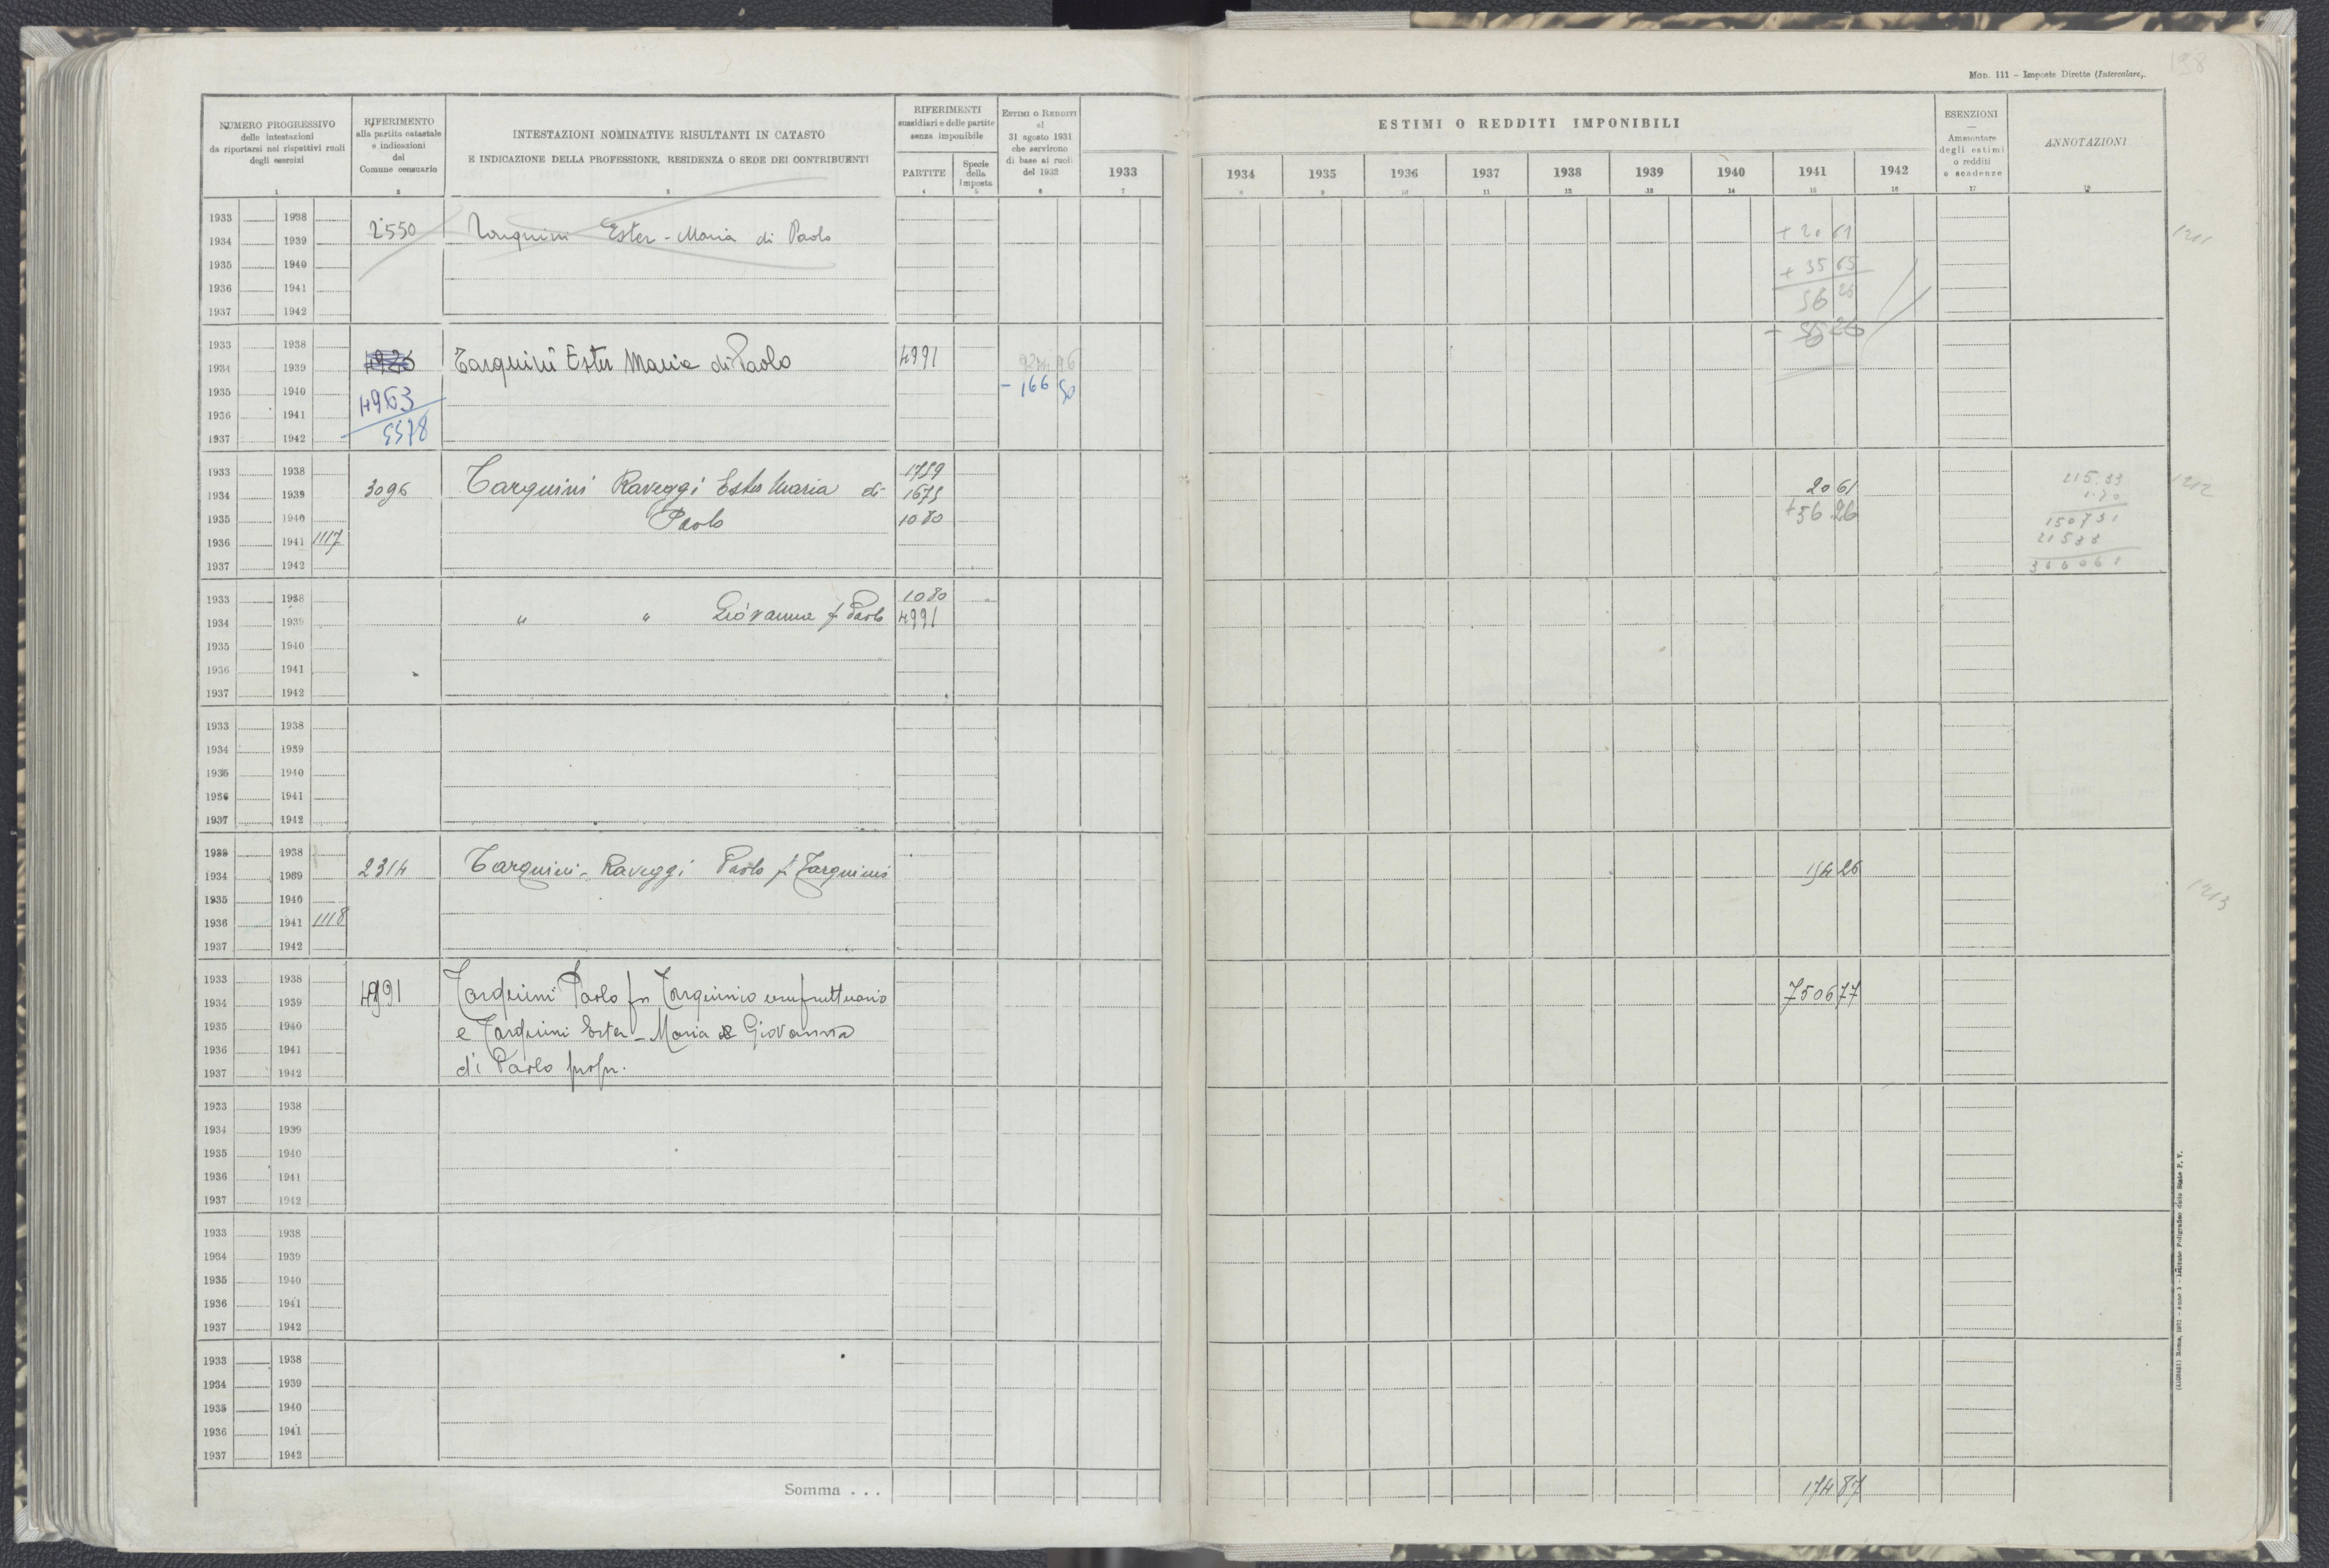 198
MOD. 111 - Imposte Dirette (Intercalare).
NUMERO PROGRESSIVO
delle intestazioni
da riportarsi nei rispettivi ruoli
degli esercizi
1
RIFERIMENTO
alla partita catastale
e indicazioni
del
Comune censuario
2
INTESTAZIONI NOMINATIVE RISULTANTI IN CATASTO
E INDICAZIONE DELLA PROFESSIONE, RESIDENZA O SEDE DEI CONTRIBUENTI
3
RIFERIMENTI
sussidiari e delle partite
senza imponibile
PARTITE
4
Specie
della
imposta
5
ESTIMI O REDDITI
al
31 agosto 1931
che servirono
di base ai ruoli
del 1932
6
1933
7
ESTIMI O REDDITI IMPONIBILI
1934 1935 1936 1937 1938 1939 1940 1941 1942
8 9 10 11 12 13 14 15 16
ESENZIONI
—
Ammontare
degli estimi
o redditi
e scadenze
17
ANNOTAZIONI
18
1933 1938
1934 1939 2550 Tarquini Ester - Maria di Paolo + 20 61 1211
1935 1940 + 35 65
1936 1941 56 26
1937 1942
- 56 26
1933 1938
1934 1939 4926 Tarquini Ester Maria di Paolo 4991
1935 1940 4963 - 166 50
1936 1941
1937 1942 5578
1933 1938 1759 215.33 1212
1934 1939 3096 Tarquini Raveggi Ester Maria di 1675 20 61 1.70
1935 1940 Paolo 1080 +56 26 150731
1936 1941 1117 21533
1937 1942 366061
1933 1938 1080
1934 1939 " " Giovanna f Paolo 4991
1935 1940
1936 1941
1937 1942
1933 1938
1934 1939
1935 1940
1936 1941
1937 1942
1933 1938
1934 1939 2314 Tarquini - Raveggi Paolo f Tarquinio 154 26 1213
1935 1940
1936 1941 1118
1937 1942
1933 1938
1934 1939 4991 Tarquini Paolo fu Tarquinio usufruttuario 7506 77
1935 1940
1936 1941 e Tarquini Ester - Maria e Giovanna
1937 1942 di Paolo propr.
1933 1938
1934 1939
1935 1940
1936 1941
1937 1942
1933 1938
1934 1939
1935 1940
1936 1941
1937 1942
1933 1938
1934 1939
1935 1940
1936 1941
1937 1942
Somma . . . 174 87